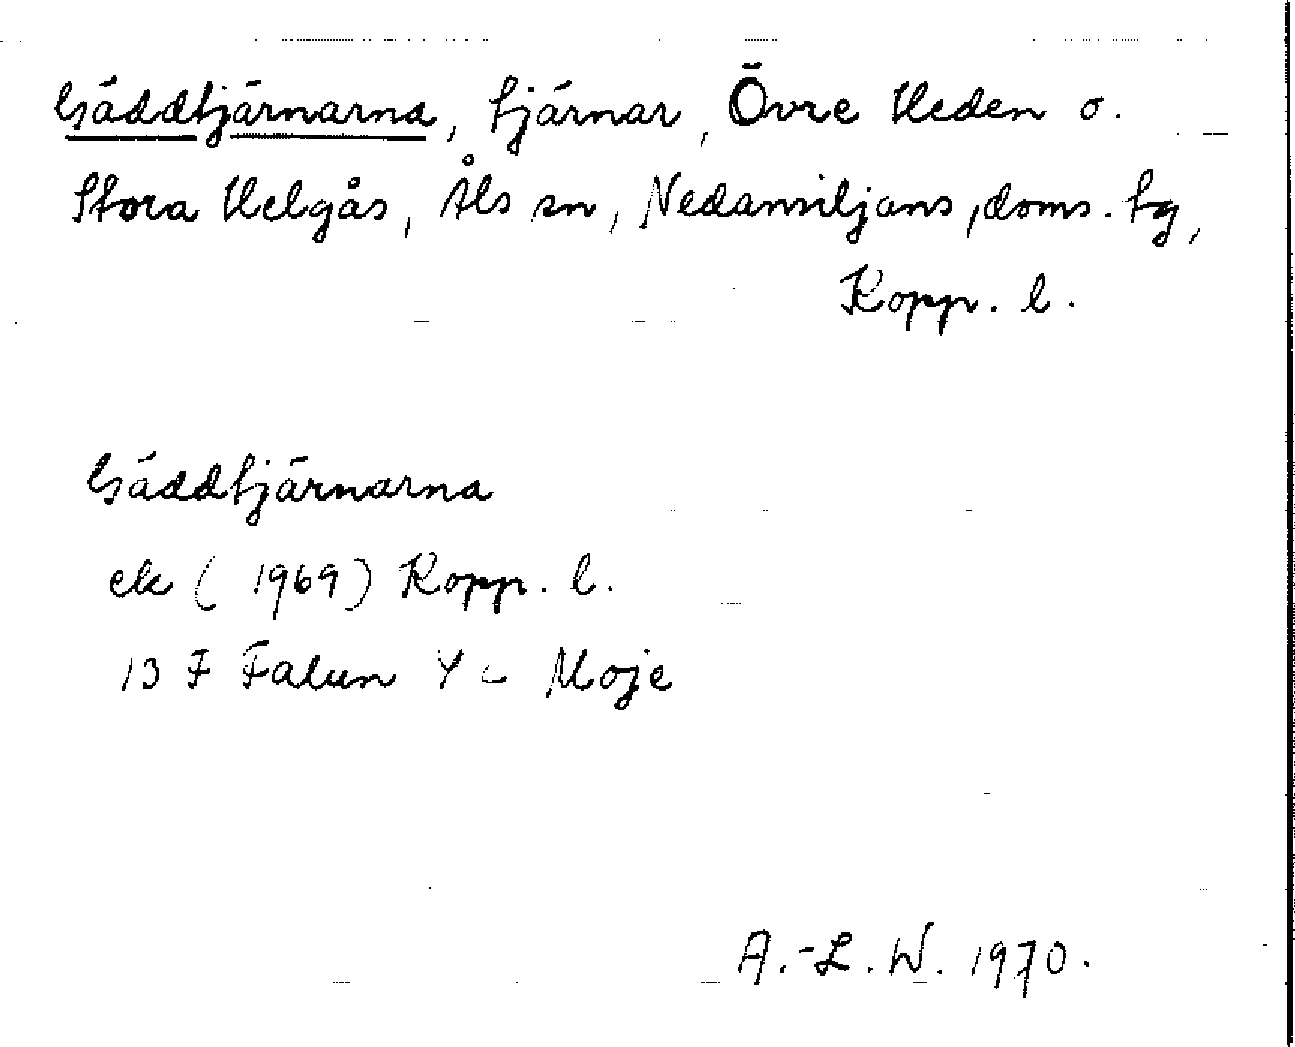 Gäddtjärnarna, tjärnar, Övre Heden o.
Stora Helgås, Åls sn, Nedansiljans, doms. tg,
Kopp. l.
Gäddtjärnarna
ek (1969) Kopp. l.
13 F Falun 4 c Moje
A.-L. W. 1970.